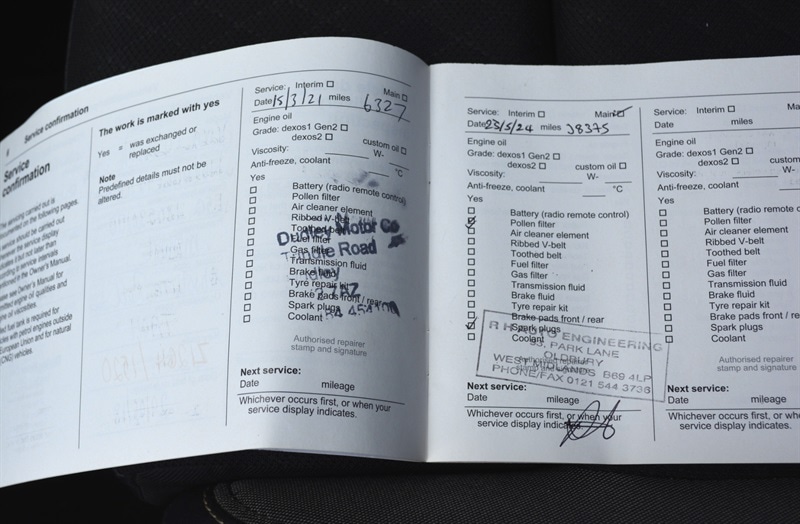 Service confirmation
Service
confirmation
The work is marked with yes
Yes = was exchanged or
replaced
Note
Predefined details must not be
altered.
Service: Interim Main
Date 15/3/21 miles 6327
Engine oil
Grade: dexos1 Gen2
dexos2 custom oil
Viscosity: W-
Anti-freeze, coolant °C
Yes
Battery (radio remote control)
Pollen filter
Air cleaner element
Ribbed V-belt
Toothed belt
Fuel filter
Gas filter
Transmission fluid
Brake fluid
Tyre repair kit
Brake pads front / rear
Spark plugs
Coolant
Dudley Motor Co
Trindle Road
Authorised repairer
stamp and signature
Next service:
Date mileage
Whichever occurs first, or when your
service display indicates.
Service: Interim Main
Date 23/5/24 miles 38375
Engine oil
Grade: dexos1 Gen2
dexos2 custom oil
Viscosity: W-
Anti-freeze, coolant °C
Yes
Battery (radio remote control)
Pollen filter
Air cleaner element
Ribbed V-belt
Toothed belt
Fuel filter
Gas filter
Transmission fluid
Brake fluid
Tyre repair kit
Brake pads front / rear
Spark plugs
Coolant
R H AUTO ENGINEERING
93, PARK LANE
OLDBURY
WEST MIDLANDS B69 4LP
PHONE/FAX 0121 544 3738
Next service:
Date mileage
Whichever occurs first, or when your
service display indicates.
Service: Interim
Date miles
Engine oil
Grade: dexos1 Gen2
dexos2 custom
Viscosity: W-
Anti-freeze, coolant
Yes
Battery (radio remote c
Pollen filter
Air cleaner element
Ribbed V-belt
Toothed belt
Fuel filter
Gas filter
Transmission fluid
Brake fluid
Tyre repair kit
Brake pads front / re
Spark plugs
Coolant
Authorised repaire
stamp and signatur
Next service:
Date mileage
Whichever occurs first, or wh
service display indicates.